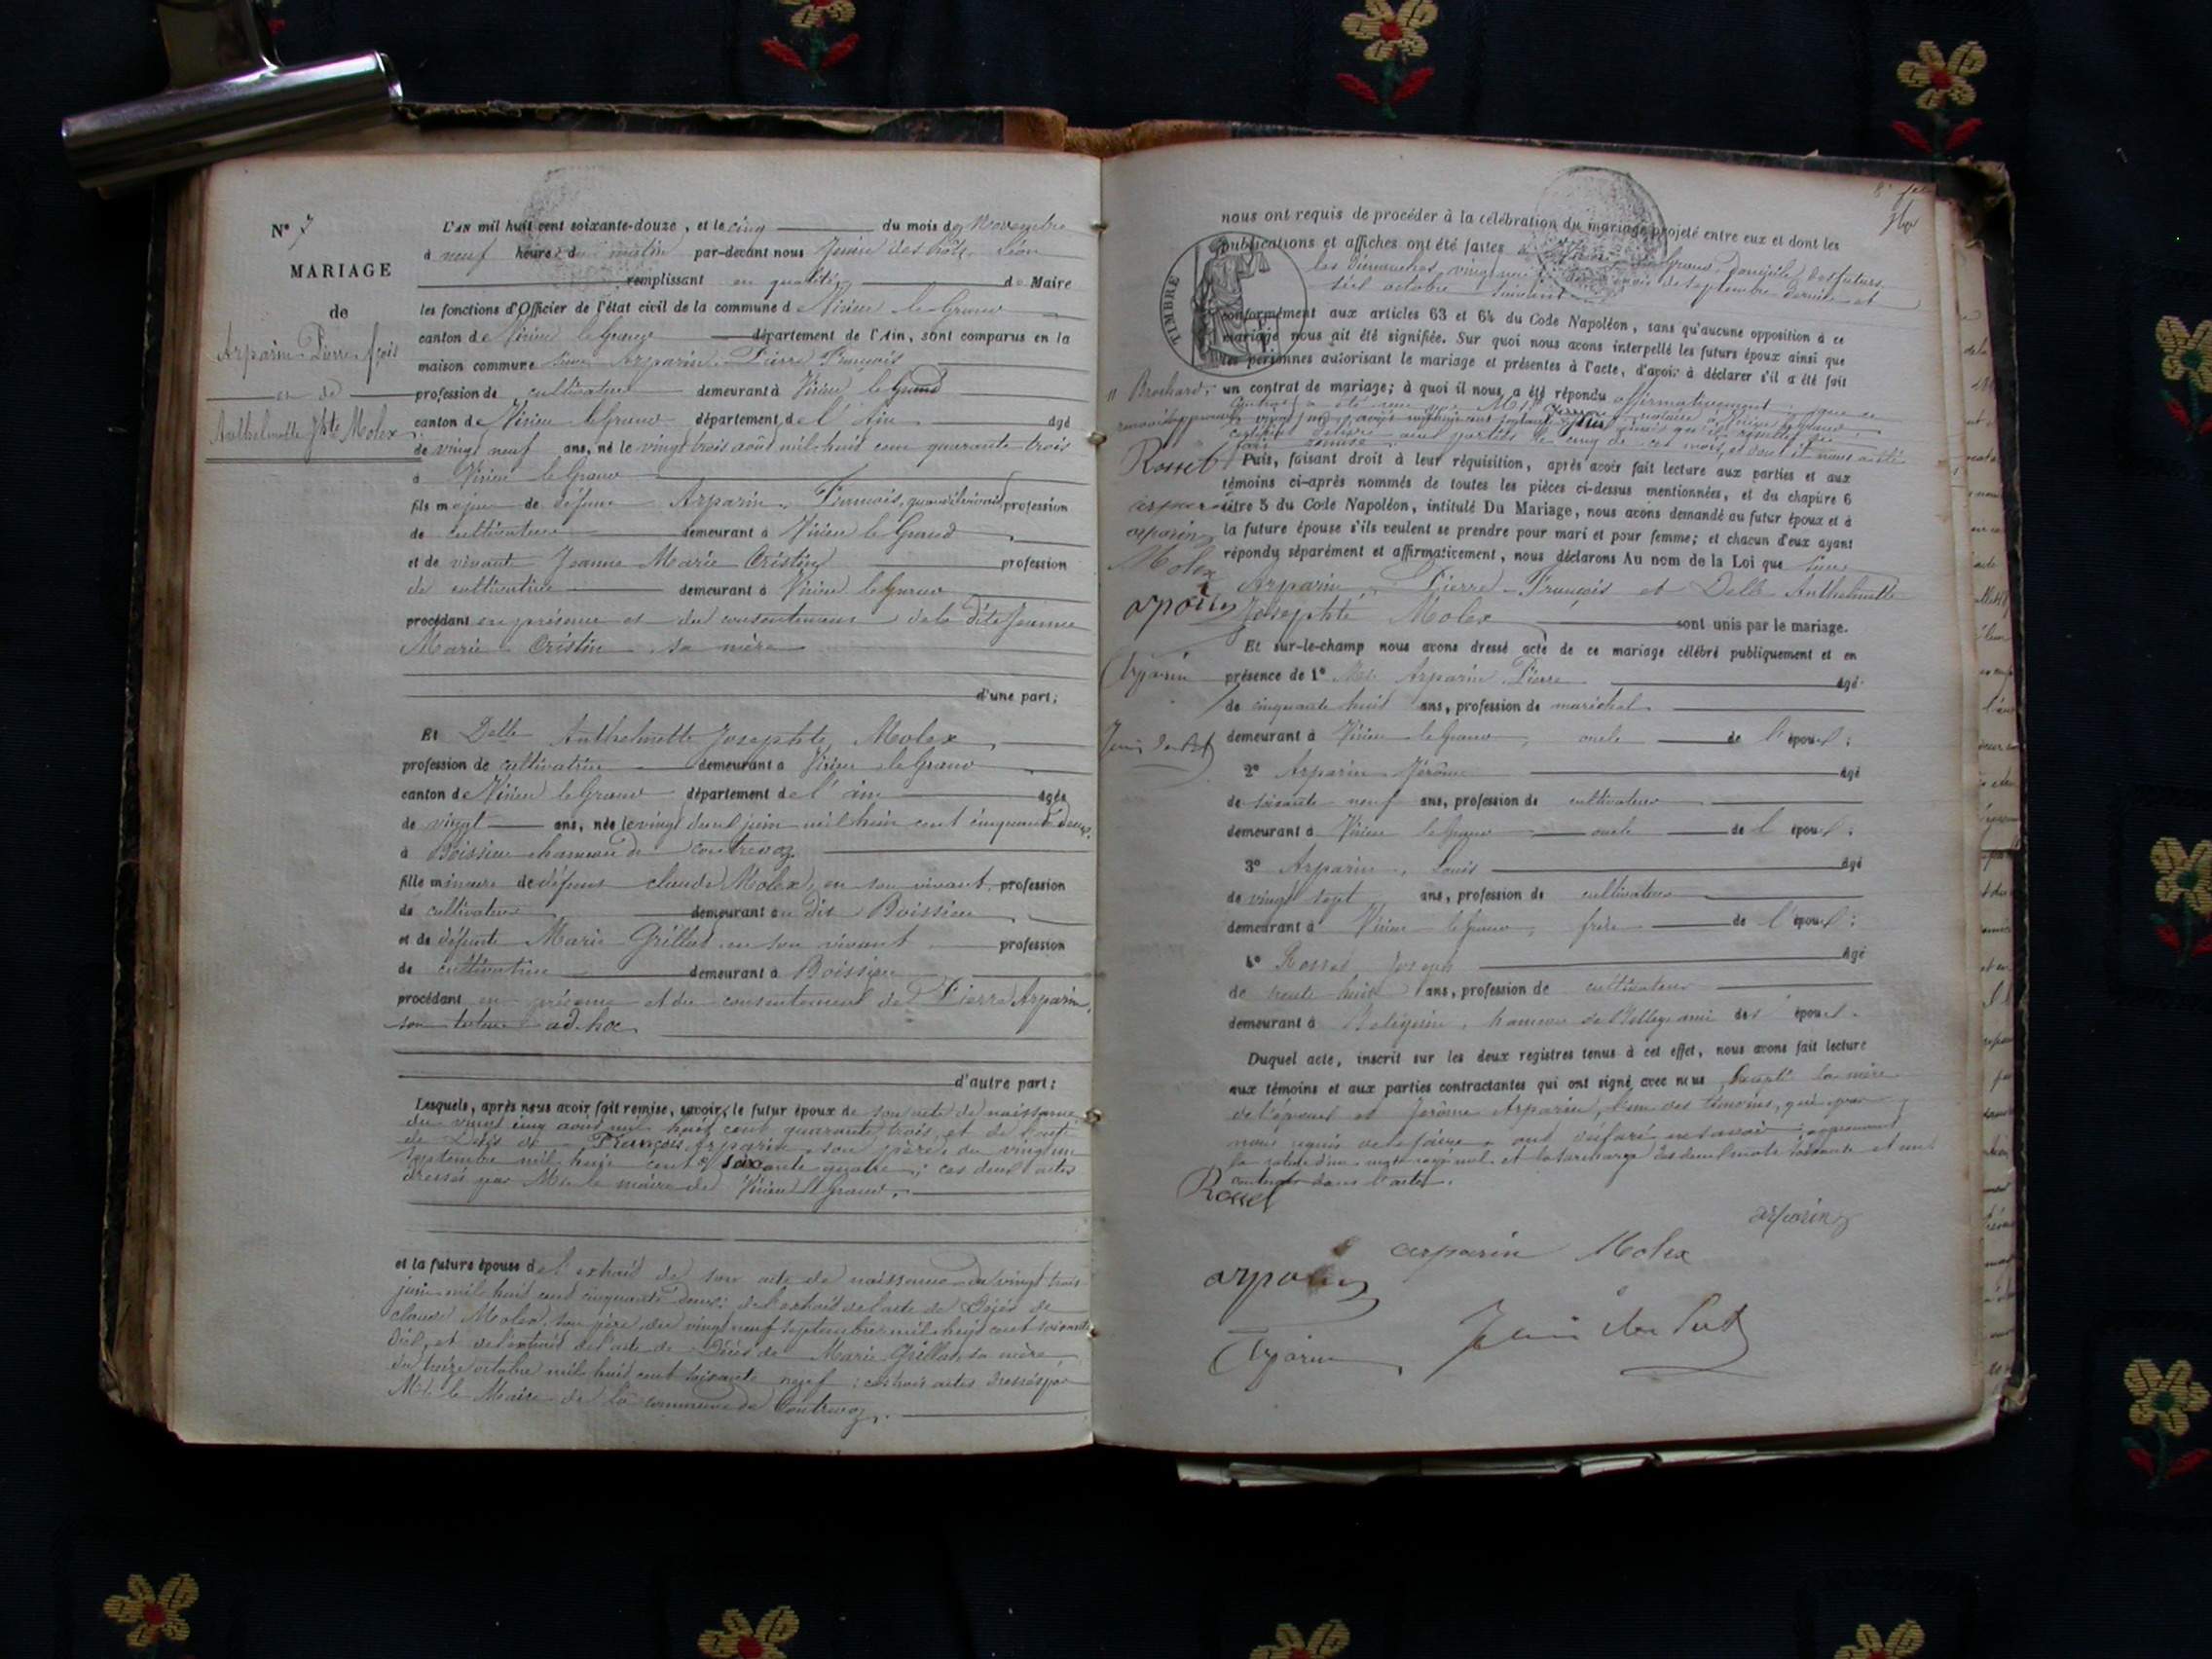 N° 7
MARIAGE
de
Arparin Pierre fçois
et de
Anthelmette Jhte Molex
L'AN mil huit cent soixante-douze, et le cinq du mois de Novembre
à neuf heures du matin par-devant nous Léon
remplissant en qualité de Maire
les fonctions d'Officier de l'état civil de la commune de Virieu le Grand
canton de Virieu le Grand département de l'Ain, sont comparus en la
maison commune Sieur Arparin Pierre François
profession de cultivateur demeurant à Virieu le Grand
canton de Virieu le Grand département de l'Ain âgé
de vingt neuf ans, né le vingt trois août mil huit cent quarante trois
à Virieu le Grand
fils majeur de défunt Arparin François, quand il vivait profession
de cultivateur demeurant à Virieu le Grand
et de vivante Jeanne Marie Cristin profession
de cultivatrice demeurant à Virieu le Grand
procédant en présence et du consentement de la dite Jeanne
Marie Cristin sa mère
d'une part;
Et Delle Anthelmette Josephte Molex
profession de cultivatrice demeurant à Virieu le Grand
canton de Virieu le Grand département de l'ain âgée
de vingt ans, née le vingt deux juin mil huit cent cinquante deux
à Boissieu hameau de Contrevoz
fille mineure de défunt claude Molex, en son vivant profession
de cultivateur demeurant au dit Boissieu
et de défunte Marie Grillet en son vivant profession
de cultivatrice demeurant à Boissieu
procédant en présence et du consentement de Pierre Arparin,
son tuteur ad hoc
d'autre part;
Lesquels, après nous avoir fait remise, savoir, le futur époux de son acte de naissance
du vingt cinq août mil huit cent quarante trois, et de l'acte
de Décès de François Arparin son père, du vingt un
septembre mil huit cent soixante quatre; ces deux actes
dressés par Mr le maire de Virieu le Grand.
et la future épouse de l'extrait de son acte de naissance du vingt trois
juin mil huit cent cinquante deux; de l'extrait de l'acte de Décès de
claude Molex son père, du vingt neuf septembre mil huit cent soixante
dix, et de l'extrait de l'acte de Décès de Marie Grillet sa mère,
du treize octobre mil huit cent soixante neuf; ces trois actes dressés par
Mr le Maire de la commune de Contrevoz.
nous ont requis de procéder à la célébration du mariage projeté entre eux et dont les
publications et affiches ont été faites à Virieu le Grand, domicile des futurs,
les Dimanches vingt neuf du mois de septembre dernier et
six octobre suivant
TIMBRE
conformément aux articles 63 et 64 du Code Napoléon, sans qu'aucune opposition à ce
mariage nous ait été signifiée. Sur quoi nous avons interpellé les futurs époux ainsi que
les personnes autorisant le mariage et présentes à l'acte, d'avoir à déclarer s'il a été fait
un contrat de mariage; à quoi il nous a été répondu affirmativement; que ce
contrat a été reçu par Me notaire à Virieu le Grand
certificat délivré aux parties le cinq de ce mois, et dont il nous a été
fait remise.
Brochard
Rosset
arparin
arparin
Molex
arparin
Arparin
Puis, faisant droit à leur réquisition, après avoir fait lecture aux parties et aux
témoins ci-après nommés de toutes les pièces ci-dessus mentionnées, et du chapitre 6
titre 5 du Code Napoléon, intitulé Du Mariage, nous avons demandé au futur époux et à
la future épouse s'ils veulent se prendre pour mari et pour femme; et chacun d'eux ayant
répondu séparément et affirmativement, nous déclarons Au nom de la Loi que Sieur
Arparin, Pierre François et Delle Anthelmette
Josephte Molex sont unis par le mariage.
Et sur-le-champ nous avons dressé acte de ce mariage célébré publiquement et en
présence de 1° Mr Arparin Pierre âgé
de cinquante huit ans, profession de maréchal
demeurant à Virieu le Grand, oncle de l'époux;
2° Arparin Jérôme âgé
de soixante neuf ans, profession de cultivateur
demeurant à Virieu le Grand oncle de l'époux;
3° Arparin, Louis âgé
de vingt sept ans, profession de cultivateur
demeurant à Virieu le Grand, frère de l'époux;
4° Rosset Joseph âgé
de trente huit ans, profession de cultivateur
demeurant à hameau de époux.
Duquel acte, inscrit sur les deux registres tenus à cet effet, nous avons fait lecture
aux témoins et aux parties contractantes qui ont signé avec nous, excepté la mère
de l'époux et Jérôme Arparin, l'un des témoins, qui, par
nous requis de le faire, ont déclaré ne savoir; approuvant
la rature d'un mot et la surcharge des deux mots soixante et un
contenus dans l'acte.
Rosset
arparin
arparin Molex
arparin
Arparin